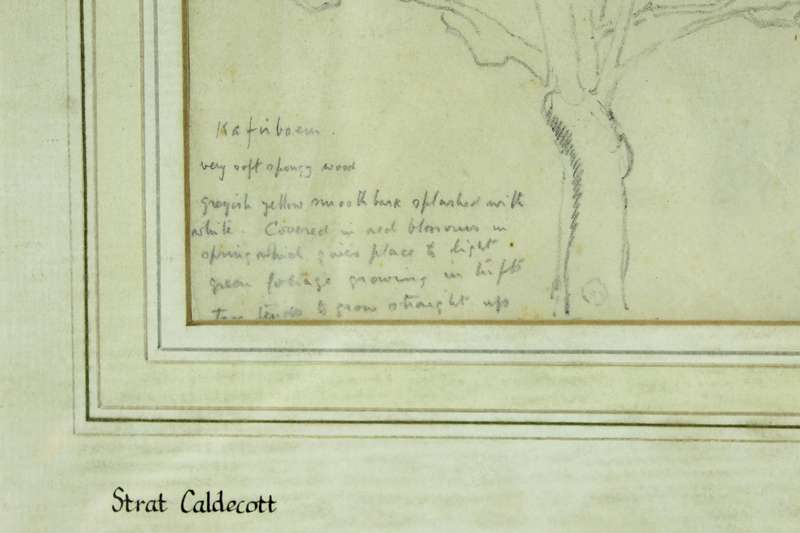 Kafirboem.
very soft spongy wood
greyish yellow smooth bark splashed with
white. Covered in red blossoms in
spring which gives place to light
green foliage growing in tufts
tends to grow straight up
Strat Caldecott